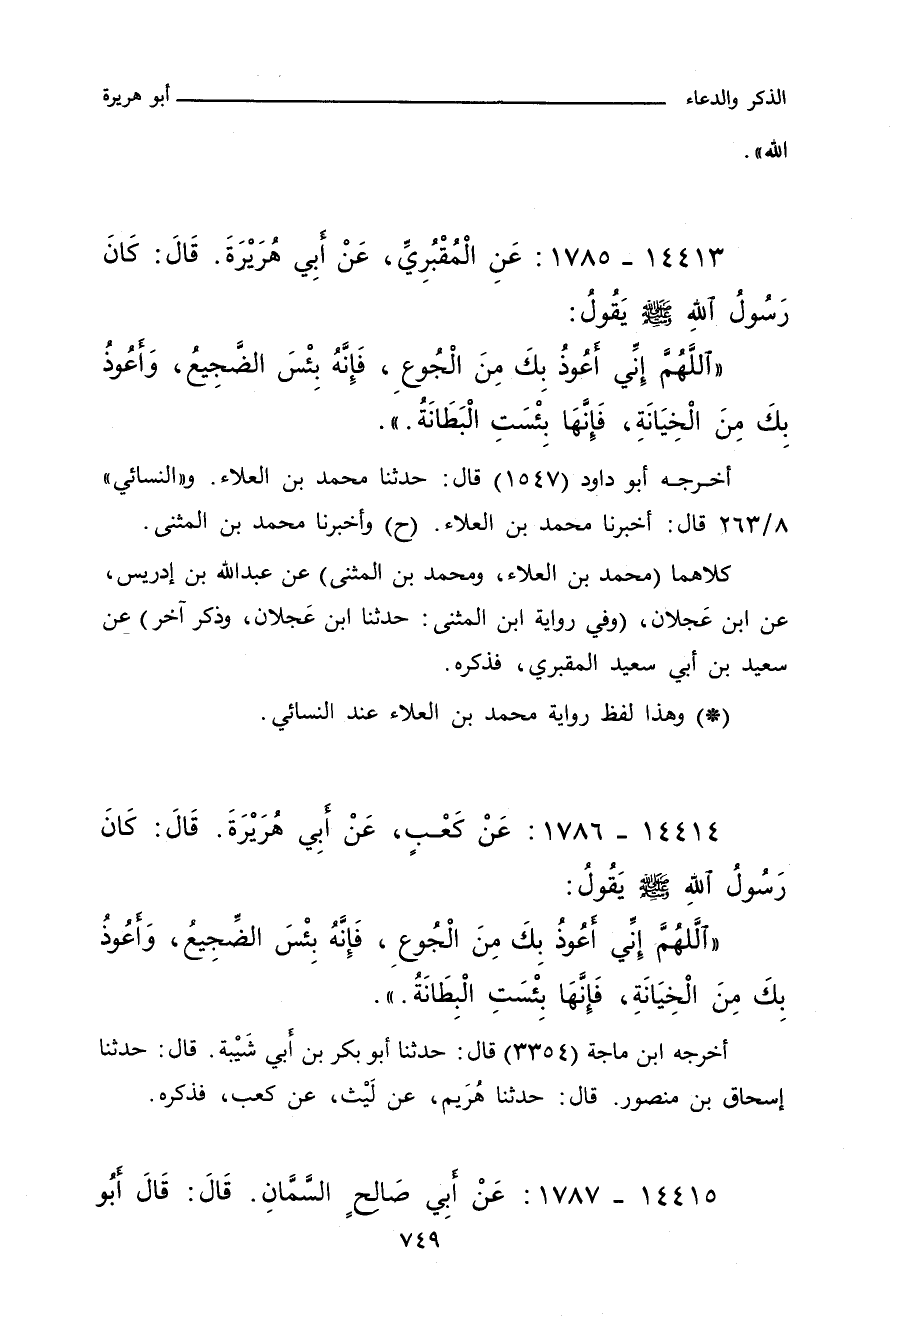 الذكر والدعاء ــــــــــــــــــــــــــــ أبو هريرة
الله».
١٤٤١٣ - ١٧٨٥: عَنِ الْمُقْبُرِيِّ، عَنْ أَبِي هُرَيْرَةَ. قَالَ: كَانَ
رَسُولُ ٱللهِ ﷺ يَقُولُ:
«ٱللَّهُمَّ إِنِّي أَعُوذُ بِكَ مِنَ الْجُوعِ، فَإِنَّهُ بِئْسَ الضَّجِيعُ، وَأَعُوذُ
بِكَ مِنَ الْخِيَانَةِ، فَإِنَّهَا بِئْسَتِ الْبَطَانَةُ.».
أخـرجـه أبو داود (١٥٤٧) قال: حدثنا محمد بن العلاء. و«النسائي»
٢٦٣/٨ قال: أخبرنا محمد بن العلاء. (ح) وأخبرنا محمد بن المثنى.
كلاهما (محمد بن العلاء، ومحمد بن المثنى) عن عبدالله بن إدريس،
عن ابن عَجلان، (وفي رواية ابن المثنى: حدثنا ابن عَجلان، وذكر آخر) عن
سعيد بن أبي سعيد المقبري، فذكره.
(*) وهذا لفظ رواية محمد بن العلاء عند النسائي.
١٤٤١٤ - ١٧٨٦: عَنْ كَعْـبٍ، عَنْ أَبِي هُرَيْرَةَ. قَالَ: كَانَ
رَسُولُ ٱللهِ ﷺ يَقُولُ:
«ٱللَّهُمَّ إِنِّي أَعُوذُ بِكَ مِنَ الْجُوعِ، فَإِنَّهُ بِئْسَ الضَّجِيعُ، وَأَعُوذُ
بِكَ مِنَ الْخِيَانَةِ، فَإِنَّهَا بِئْسَتِ الْبِطَانَةُ.».
أخرجه ابن ماجة (٣٣٥٤) قال: حدثنا أبو بكر بن أَبي شَيْبة. قال: حدثنا
إسحاق بن منصور. قال: حدثنا هُرَيم، عن لَيْث، عن كعب، فذكره.
١٤٤١٥ - ١٧٨٧: عَنْ أَبِي صَالِحٍ السَّمَّانِ. قَالَ: قَالَ أَبُو
٧٤٩